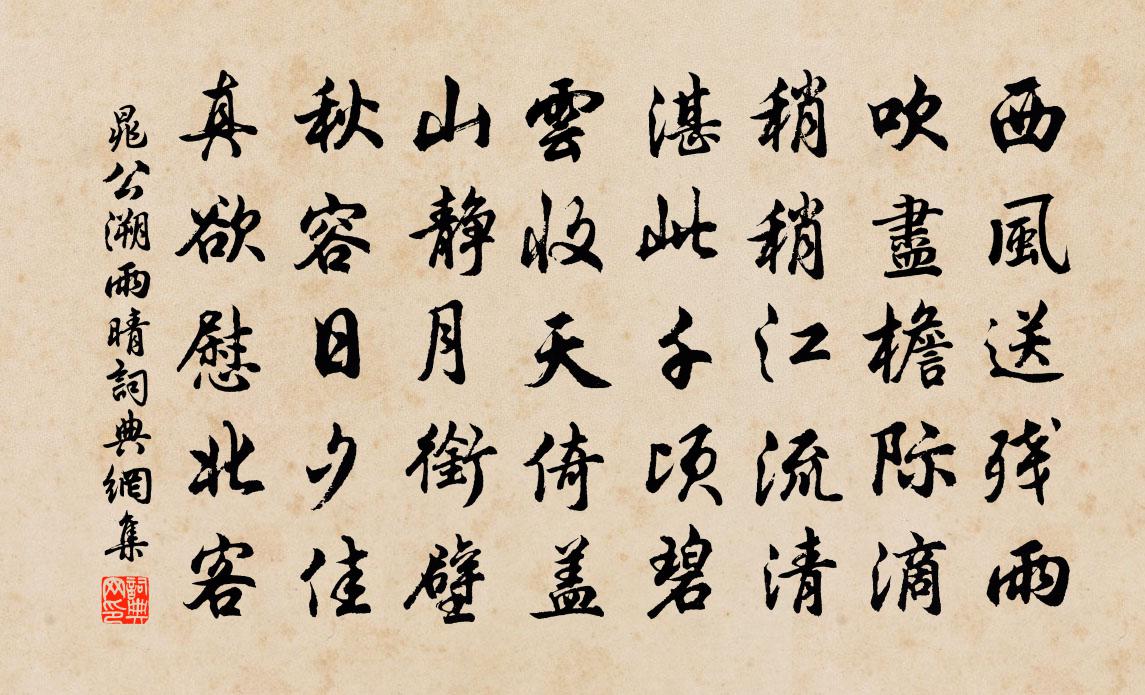 西風送残雨
吹盡檐际滴
稍稍江流清
湛此千顷碧
雲收天倚盖
山靜月銜壁
秋容日夕佳
真欲慰北客
晁公溯雨晴詞典網集
詞典网印